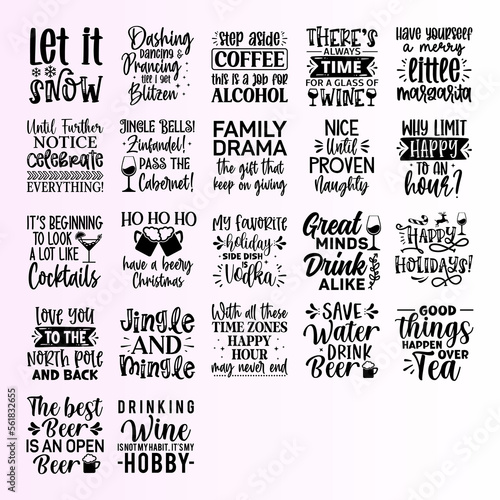 Let it
SNOW
Dashing
DANCING &
Prancing
till I get
Blitzen
Step aside
COFFEE
this is a job for
ALCOHOL
THERE'S
ALWAYS
TIME
FOR A GLASS OF
WINE
Have yourself
a merry
little
margarita
Until Further
NOTICE
celebrate
EVERYTHING!
JINGLE BELLS!
Zinfandel!
PASS THE
Cabernet!
FAMILY
DRAMA
the gift that
keep on giving
NICE
Until
PROVEN
Naughty
WHY LIMIT
HAPPY
TO AN
hour?
IT'S BEGINNING
TO LOOK
A LOT LIKE
Cocktails
HO HO HO
have a beery
Christmas
My favorite
holiday
SIDE DISH
IS
Vodka
Great
MINDS
Drink
ALIKE
HAPPY
HOLIDAYS!
Love you
TO THE
NORTH POLE
AND BACK
Jingle
AND
mingle
With all these
TIME ZONES
HAPPY
HOUR
may never end
SAVE
Water
DRINK
Beer
GOOD
things
HAPPEN OVER
Tea
The best
Beer
IS AN OPEN
Beer
DRINKING
Wine
IS NOT MY HABIT, IT'S MY
-HOBBY-
Adobe Stock | #561832655